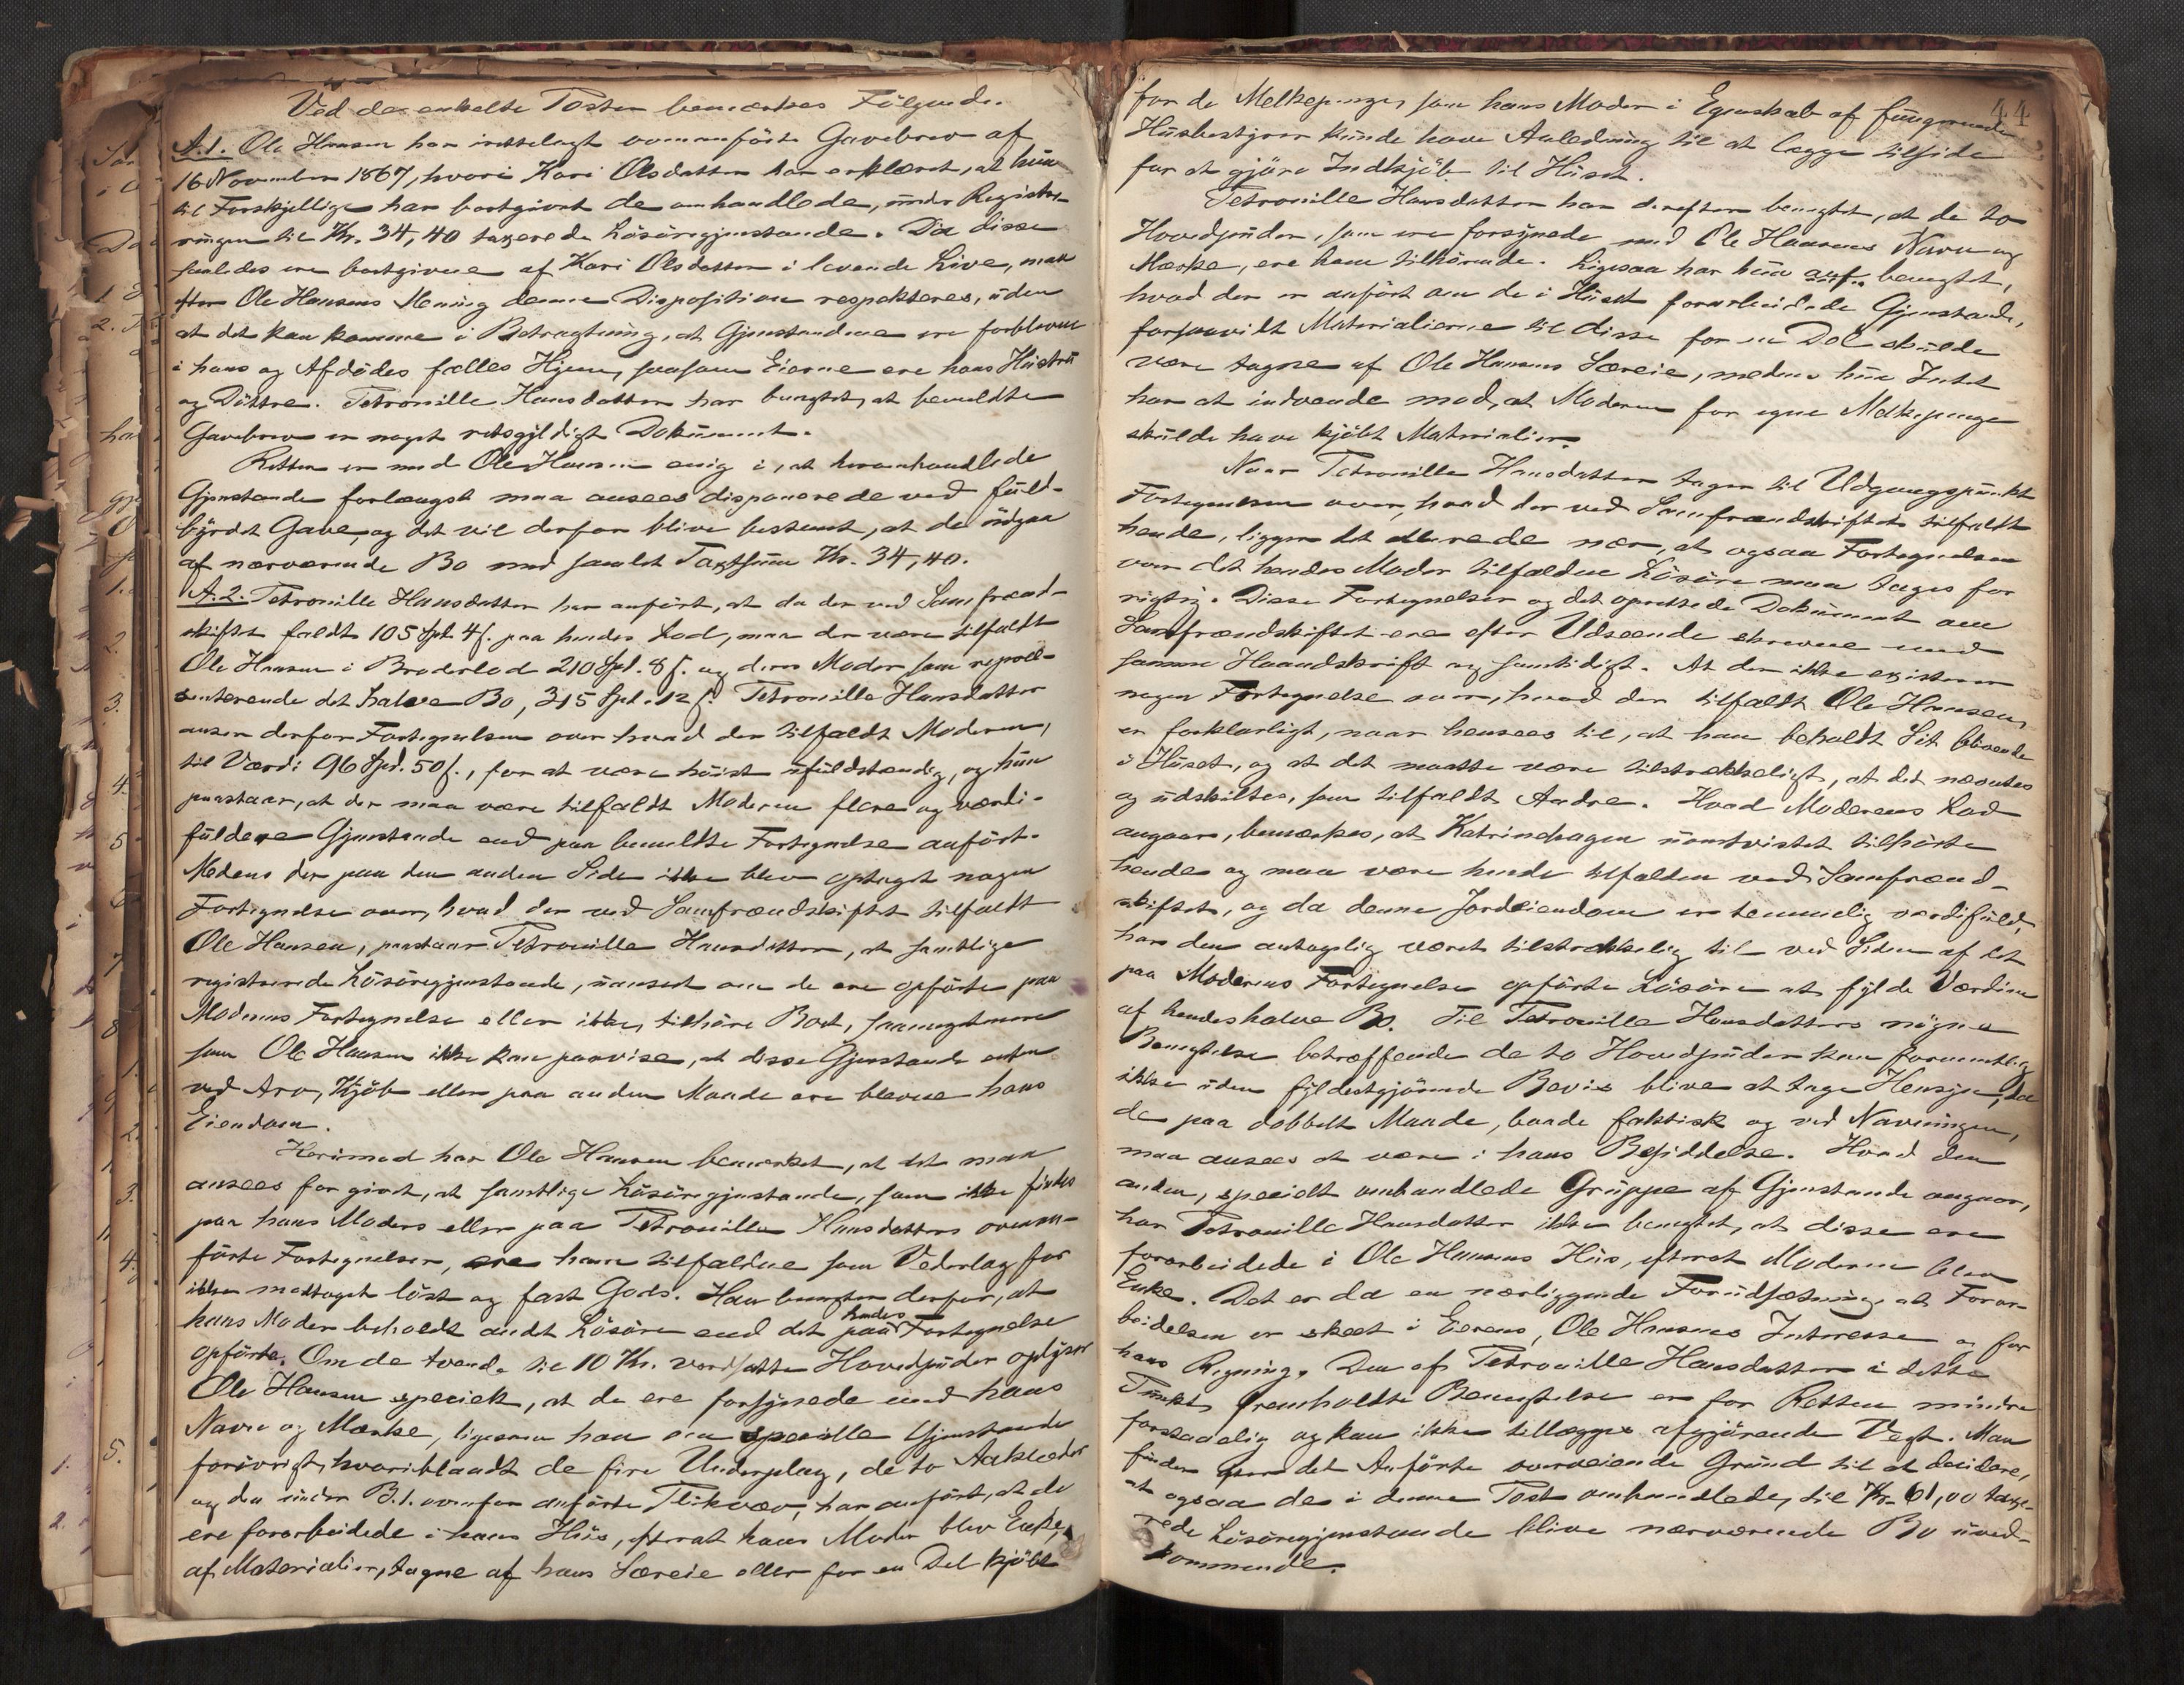 Ved de enkelte Poster bemærkes Følgende.
A.1. Ole Hansen har irettelagt ovenanførte Gavebrev af
16 November 1867, hvori Kari Olsdatter har erklæret, at hun
til Forskjellige har bortgivet de omhandlede, under Registre-
ringen til Kr. 34,40 taxerede Løsøregjenstande. Da disse
saaledes ere bortgivne af Kari Olsdatter i levende Live, maa
efter Ole Hansens Mening denne Disposition respekteres, uden
at det kan komme i Betragtning, at Gjenstandene ere forblevne
i hans og Afdødes fælles Hjem, saasom Eierne ere hans Hustru
og Døttre. Petronille Hansdatter har benegtet, at bemeldte
Gavebrev er noget retsgyldigt Dokument.
Retten er med Ole Hansen enig i, at heromhandlede
Gjenstande forlængst maa ansees disponerede ved fuld-
byrdet Gave, og det vil derfor blive bestemt, at de udgaa
af nærværende Bo med samlet Taxtsum Kr. 34,40.
A.2. Petronille Hansdatter har anført, at da der ved Samfrænd-
skiftet faldt 105 Spd. 4 s. paa hendes Lod, maa der være tilfaldt
Ole Hansen i Broderlod 210 Spd. 8 s. og deres Moder som repræ-
senterende det halve Bo, 315 Spd. 12 s. Petronille Hansdatter
anser derfor Fortegnelsen over hvad der tilfaldt Moderen,
til Værdi 96 Spd. 50 s., for at være høist ufuldstændig, og hun
paastaar, at der maa være tilfaldt Moderen flere og værdi-
fuldere Gjenstande end paa bemeldte Fortegnelse anført.
Medens der paa den anden Side ikke blev optaget nogen
Fortegnelse over, hvad der ved Samfrændskiftet tilfaldt
Ole Hansen, paastaar Petronille Hansdatter, at samtlige
registrerede Løsøregjenstande, uanseet om de ere opførte paa
Moderens Fortegnelse eller ikke, tilhøre Boet, saameget mere
som Ole Hansen ikke kan paavise, at disse Gjenstande enten
ved Arv, Kjøb eller paa anden Maade ere blevne hans
Eiendom.
Herimod har Ole Hansen bemærket, at det maa
ansees for givet, at samtlige Løsøregjenstande, som ikke findes
paa hans Moders eller paa Petronille Hansdatters ovenan-
førte Fortegnelser, ere ham tilfaldne som Vederlag for
ikke modtaget løst og fast Gods. Han benegter derfor, at
hans Moder beholdt andt Løsøre end det paa hendes Fortegnelse
opførte. Om de tvende til 10 Kr. værdsatte Hovedpuder oplyser
Ole Hansen specielt, at de ere forsynede med hans
Navn og Mærke, ligesom han om specielle Gjenstande
forøvrigt, hvoriblandt de fire Underplag, de to Aaklæder
og den under B.1. ovenfor anførte Flikvæv, har anført, at de
ere forarbeidede i hans Hus, efterat hans Moder blev Enke,
af Materialier, tagne af hans Særeie eller for en Del kjøbt
44
for de Melkepenger, som hans Moder i Egenskab af fungerende
Husbestyrer kunde have Anledning til at lægge tilside
for at gjøre Indkjøb til Huset.
Petronille Hansdatter har derefter benegtet, at de to
Hovedpuder, som ere forsynede med Ole Hansens Navn og
Mærke, ere ham tilhørende. Ligesaa har hun benegtet,
hvad der er anført om de i Huset forarbeidede Gjenstande,
forsaavidt Materialierne til disse for en Del skulde
være tagne af Ole Hansens Særeie, medens hun Intet
har at indvende mod, at Moderen for egne Melkepenge
skulde have kjøbt Materialier.
Naar Petronille Hansdatter tager til Udgangspunkt
Fortegnelsen over, hvad der ved Samfrændskiftet tilfaldt
hende, ligger det allerede nær, at ogsaa Fortegnelsen
over det hendes Moder tilfaldne Løsøre maa tages for
rigtig. Disse Fortegnelser og det oprettede Dokument om
Samfrændskiftet ere efter Udseende skrevne med
samme Haandskrift og samtidigt. At der ikke existerer
nogen Fortegnelse over, hvad der tilfaldt Ole Hansen,
er forklarligt, naar hensees til, at han beholdt Sit blivende
i Huset, og at det maatte være tilstrækkeligt, at det nævntes
og udskiltes, som tilfaldt Andre. Hvad Moderens Lod
angaar, bemærkes, at Katrinehagen uomtvistet tilhørte
hende og maa være hende tilfalden ved Samfrænd-
skiftet, og da denne Jordeiendom er temmelig værdifuld,
har den antagelig været tilstrækkelig til ved Siden af det
paa Moderens Fortegnelse opførte Løsøre at fylde Værdien
af hendes halve Bo. Til Petronille Hansdatters nøgne
Benegtelse betræffende de to Hovedpuder kan formentlig
ikke uden fyldestgjørende Bevis blive at tage Hensyn, da
de paa dobbelt Maade, baade faktisk og ved Navningen,
maa ansees at være i hans Besiddelse. Hvad den
anden, specielt omhandlede Gruppe af Gjenstande angaar,
har Petronille Hansdatter ikke benegtet, at disse ere
forarbeidede i Ole Hansens Hus, efterat Moderen blev
Enke. Det er da en nærliggende Forudsætning, at Forar-
beidelsen er skeet i Eierens, Ole Hansens Interesse og for
hans Regning. Den af Petronille Hansdatter i dette
Punkt fremholdte Benegtelse er for Retten mindre
forstaaelig og kan ikke tillægges afgjørende Vegt. Man
finder det Anførte overveiende Grund til at decidere,
at ogsaa de i denne Post omhandlede, til Kr. 61,00 taxe-
rede Løsøregjenstande blive nærværende Bo uved-
kommende.